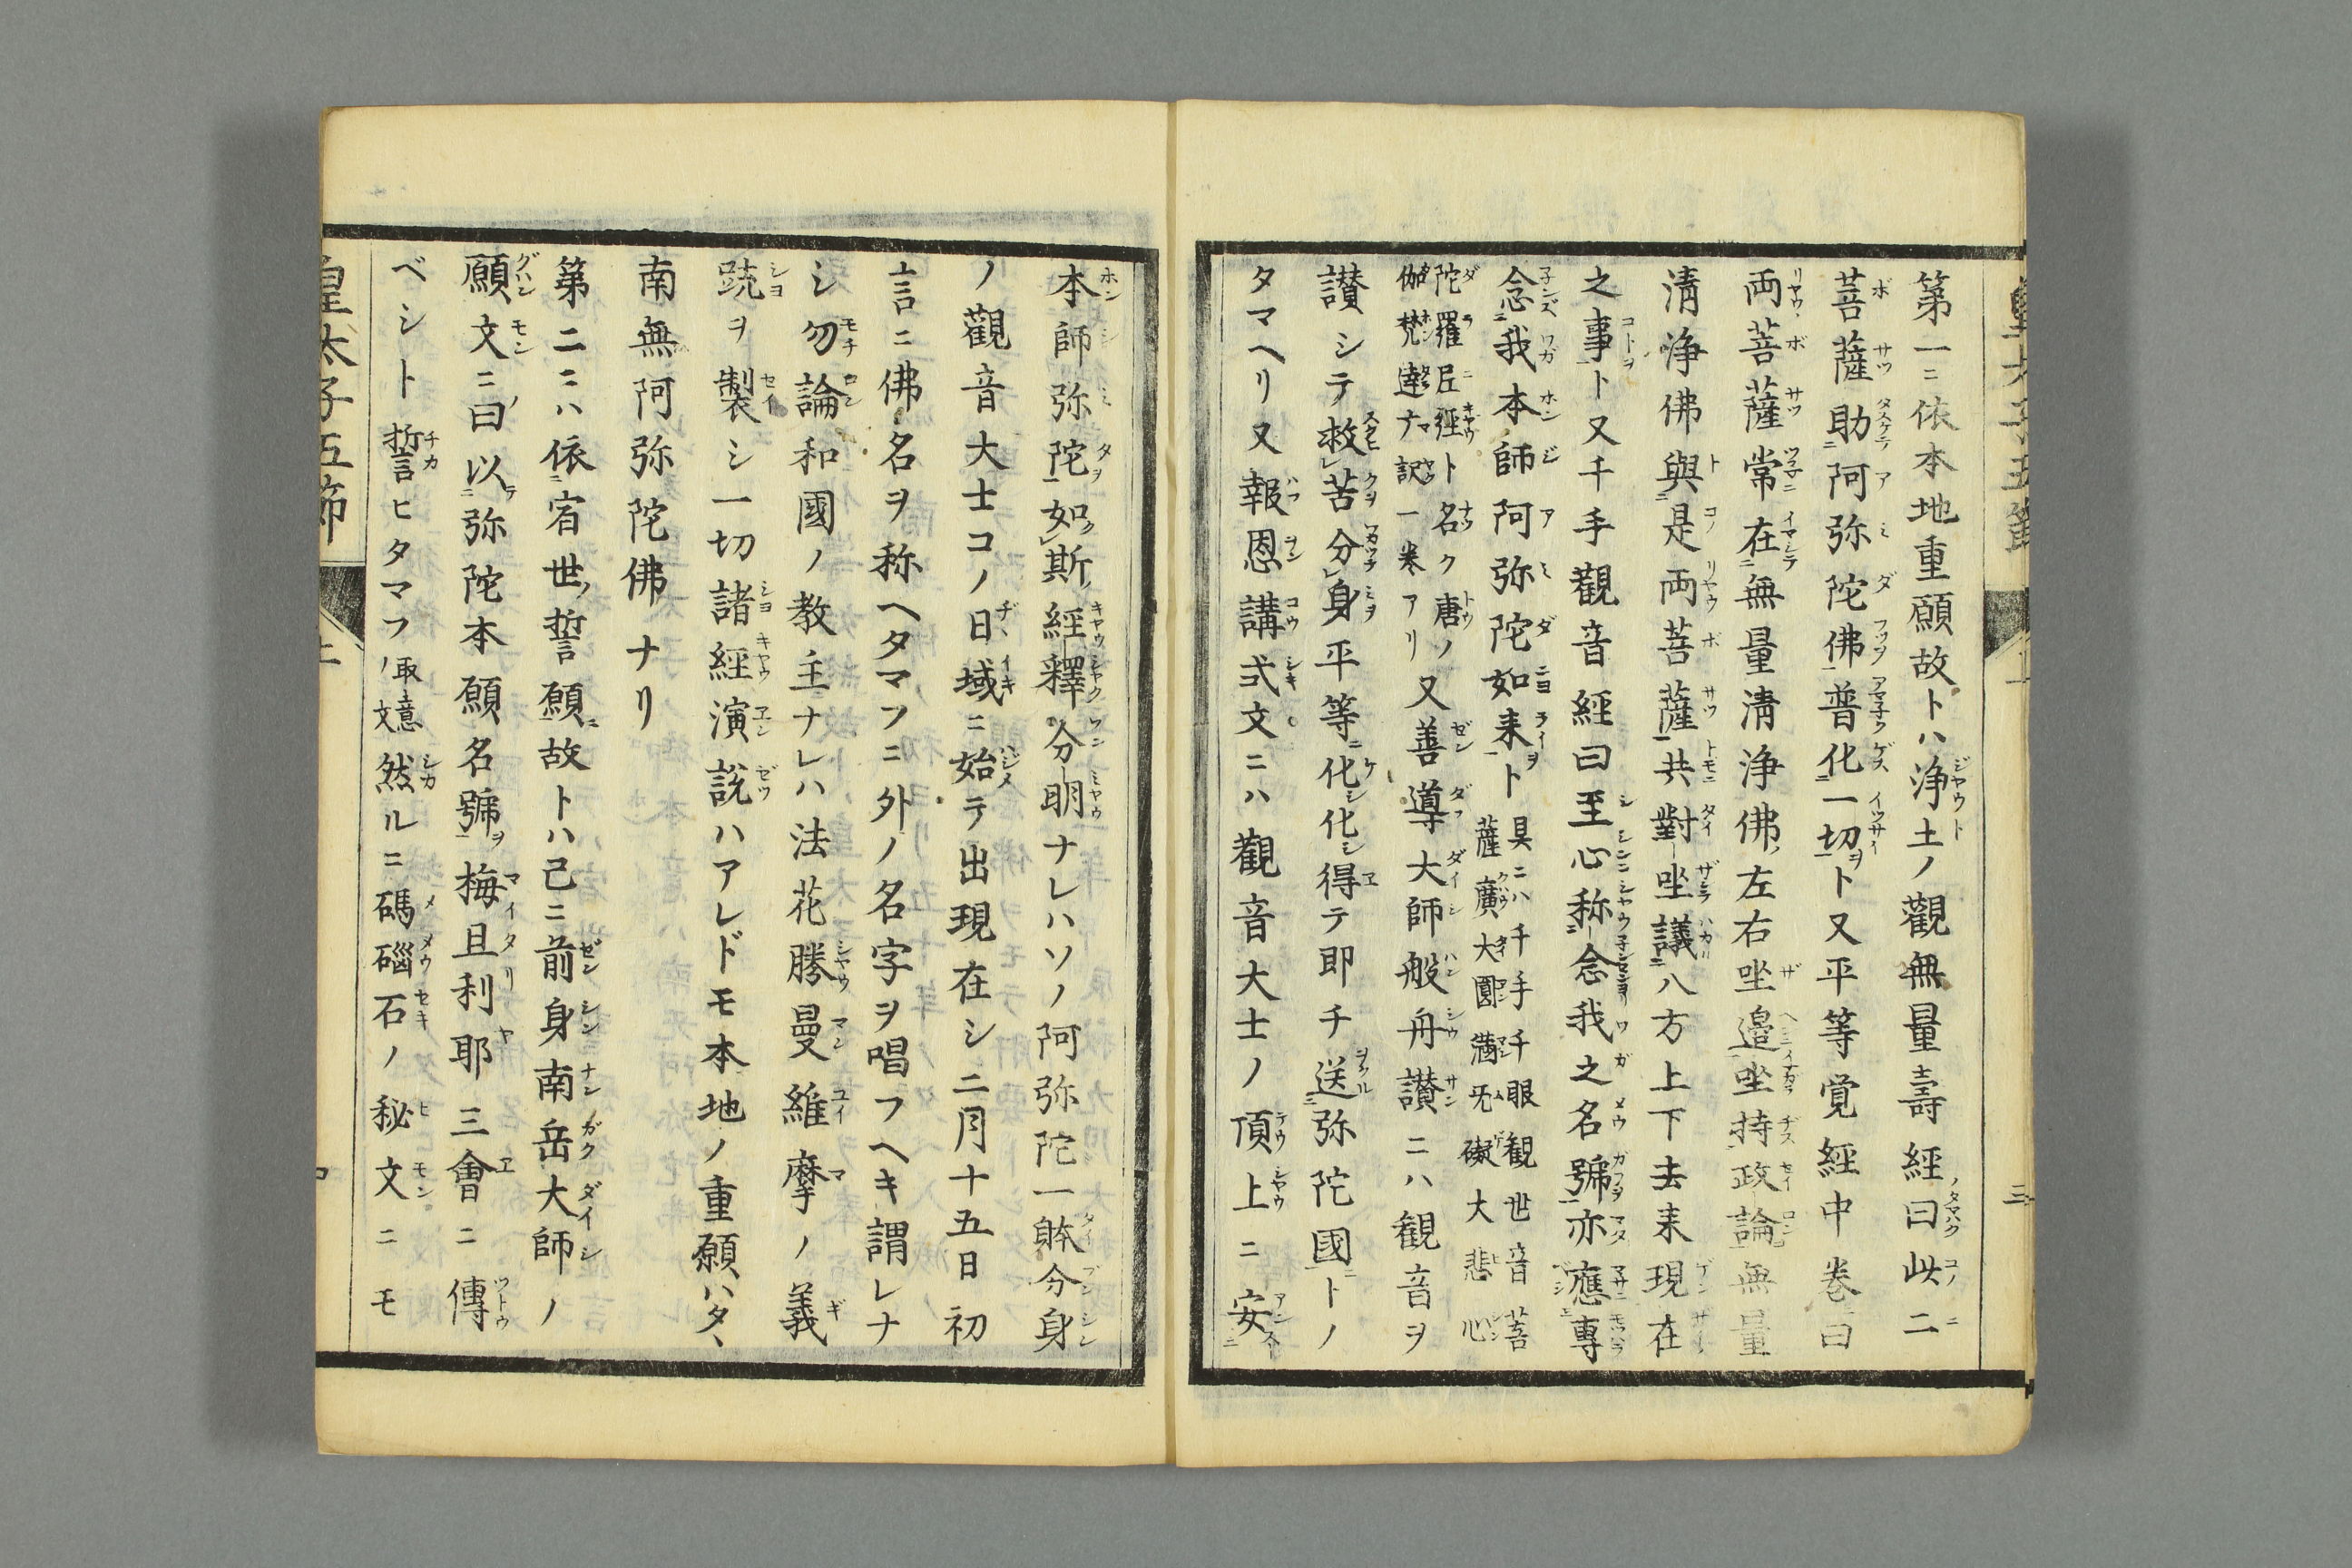 第一ニ依本地重願故トハ浄土ノ觀無量壽經曰此二
菩薩助阿弥陀佛普化一切ト又平等覚經中巻曰
両菩薩常在無量淸浄佛左右坐邉坐持政論無量
淸浄佛與是両菩薩共對坐議八方上下去来現在
之事ト又千手觀音經曰至心称念我之名號亦應專
念我本師阿弥陀如来ト具ニハ千手千眼観世音菩
薩廣大圓滿旡礙大悲心
陀羅尼經ト名ク唐ノ
伽梵達ナマ訳一巻アリ又善導大師般舟讃ニハ観音ヲ
讃シテ救苦分身平等化化得テ即チ送弥陀國トノ
タマヘリ又報恩講式文ニハ觀音大士ノ頂上ニ安
本師弥陀如斯經釋分明ナレハソノ阿弥陀一躰分身
ノ觀音大士コノ日域ニ始テ出現在シ二月十五日初
言ニ佛名ヲ称ヘタマフニ外ノ名字ヲ唱フヘキ謂レナ
シ勿論和國ノ教主ナレハ法花勝曼維摩ノ義
䟽ヲ製シ一切諸經演説ハアレドモ本地ノ重願ハタヽ
南無阿弥陀佛ナリ
第二ニハ依宿世誓願故トハ己ニ前身南岳大師ノ
願文ニ曰以弥陀本願名號梅且利耶三會ニ傳
ベシト誓ヒタマフ取意文然ルニ碼碯石ノ秘文ニモ
皇太子五節